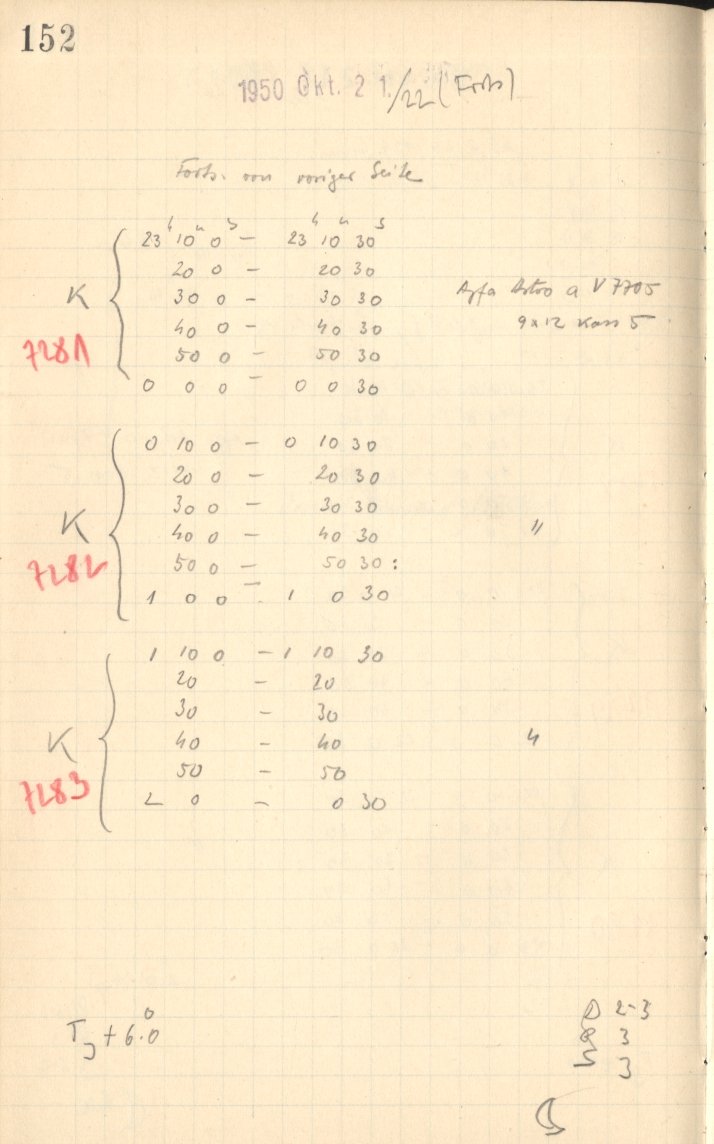 152
1950 Okt. 2 1./22 (Forts)
Forts. von voriger Seite
23ʰ 10ᵐ 0ˢ – 23ʰ 10ᵐ 30ˢ
20 0 – 20 30
K 30 0 – 30 30 Agfa Astro a V 7705
40 0 – 40 30 9x12 Kass 5
7281 50 0 – 50 30
0 0 0 – 0 0 30
0 10 0 – 0 10 30
20 0 – 20 30
30 0 – 30 30
K 40 0 – 40 30 "
7282 50 0 – 50 30 :
1 0 0 – 1 0 30
1 10 0 – 1 10 30
20 – 20
30 – 30
K 40 – 40 "
7283 50 – 50
2 0 – 0 30
D 2-3
T + 6.°0 R 3
S 3